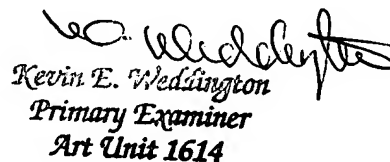 Kevin E. Weddington
Primary Examiner
Art Unit 1614